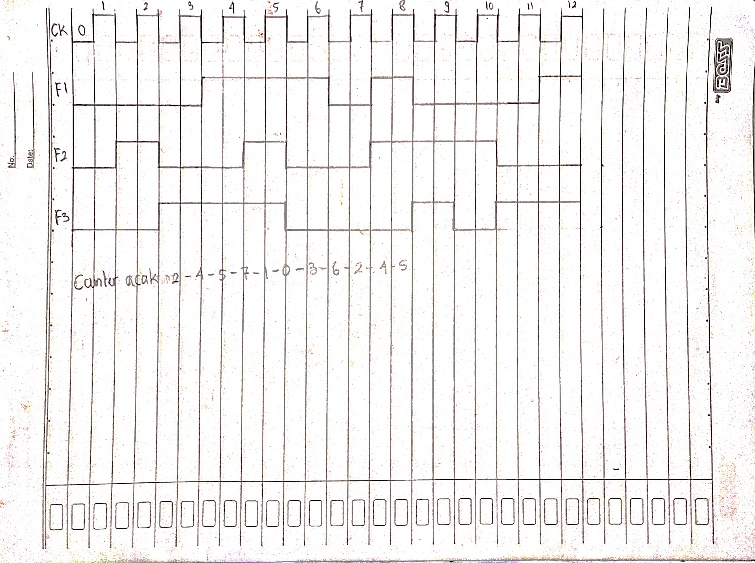 1 2 3 4 5 6 7 8 9 10 11 12
CK 0
F1
F2
F3
Counter acak = 2 - 4 - 5 - 7 - 1 - 0 - 3 - 6 - 2 - 4 - 5
No.
Date: